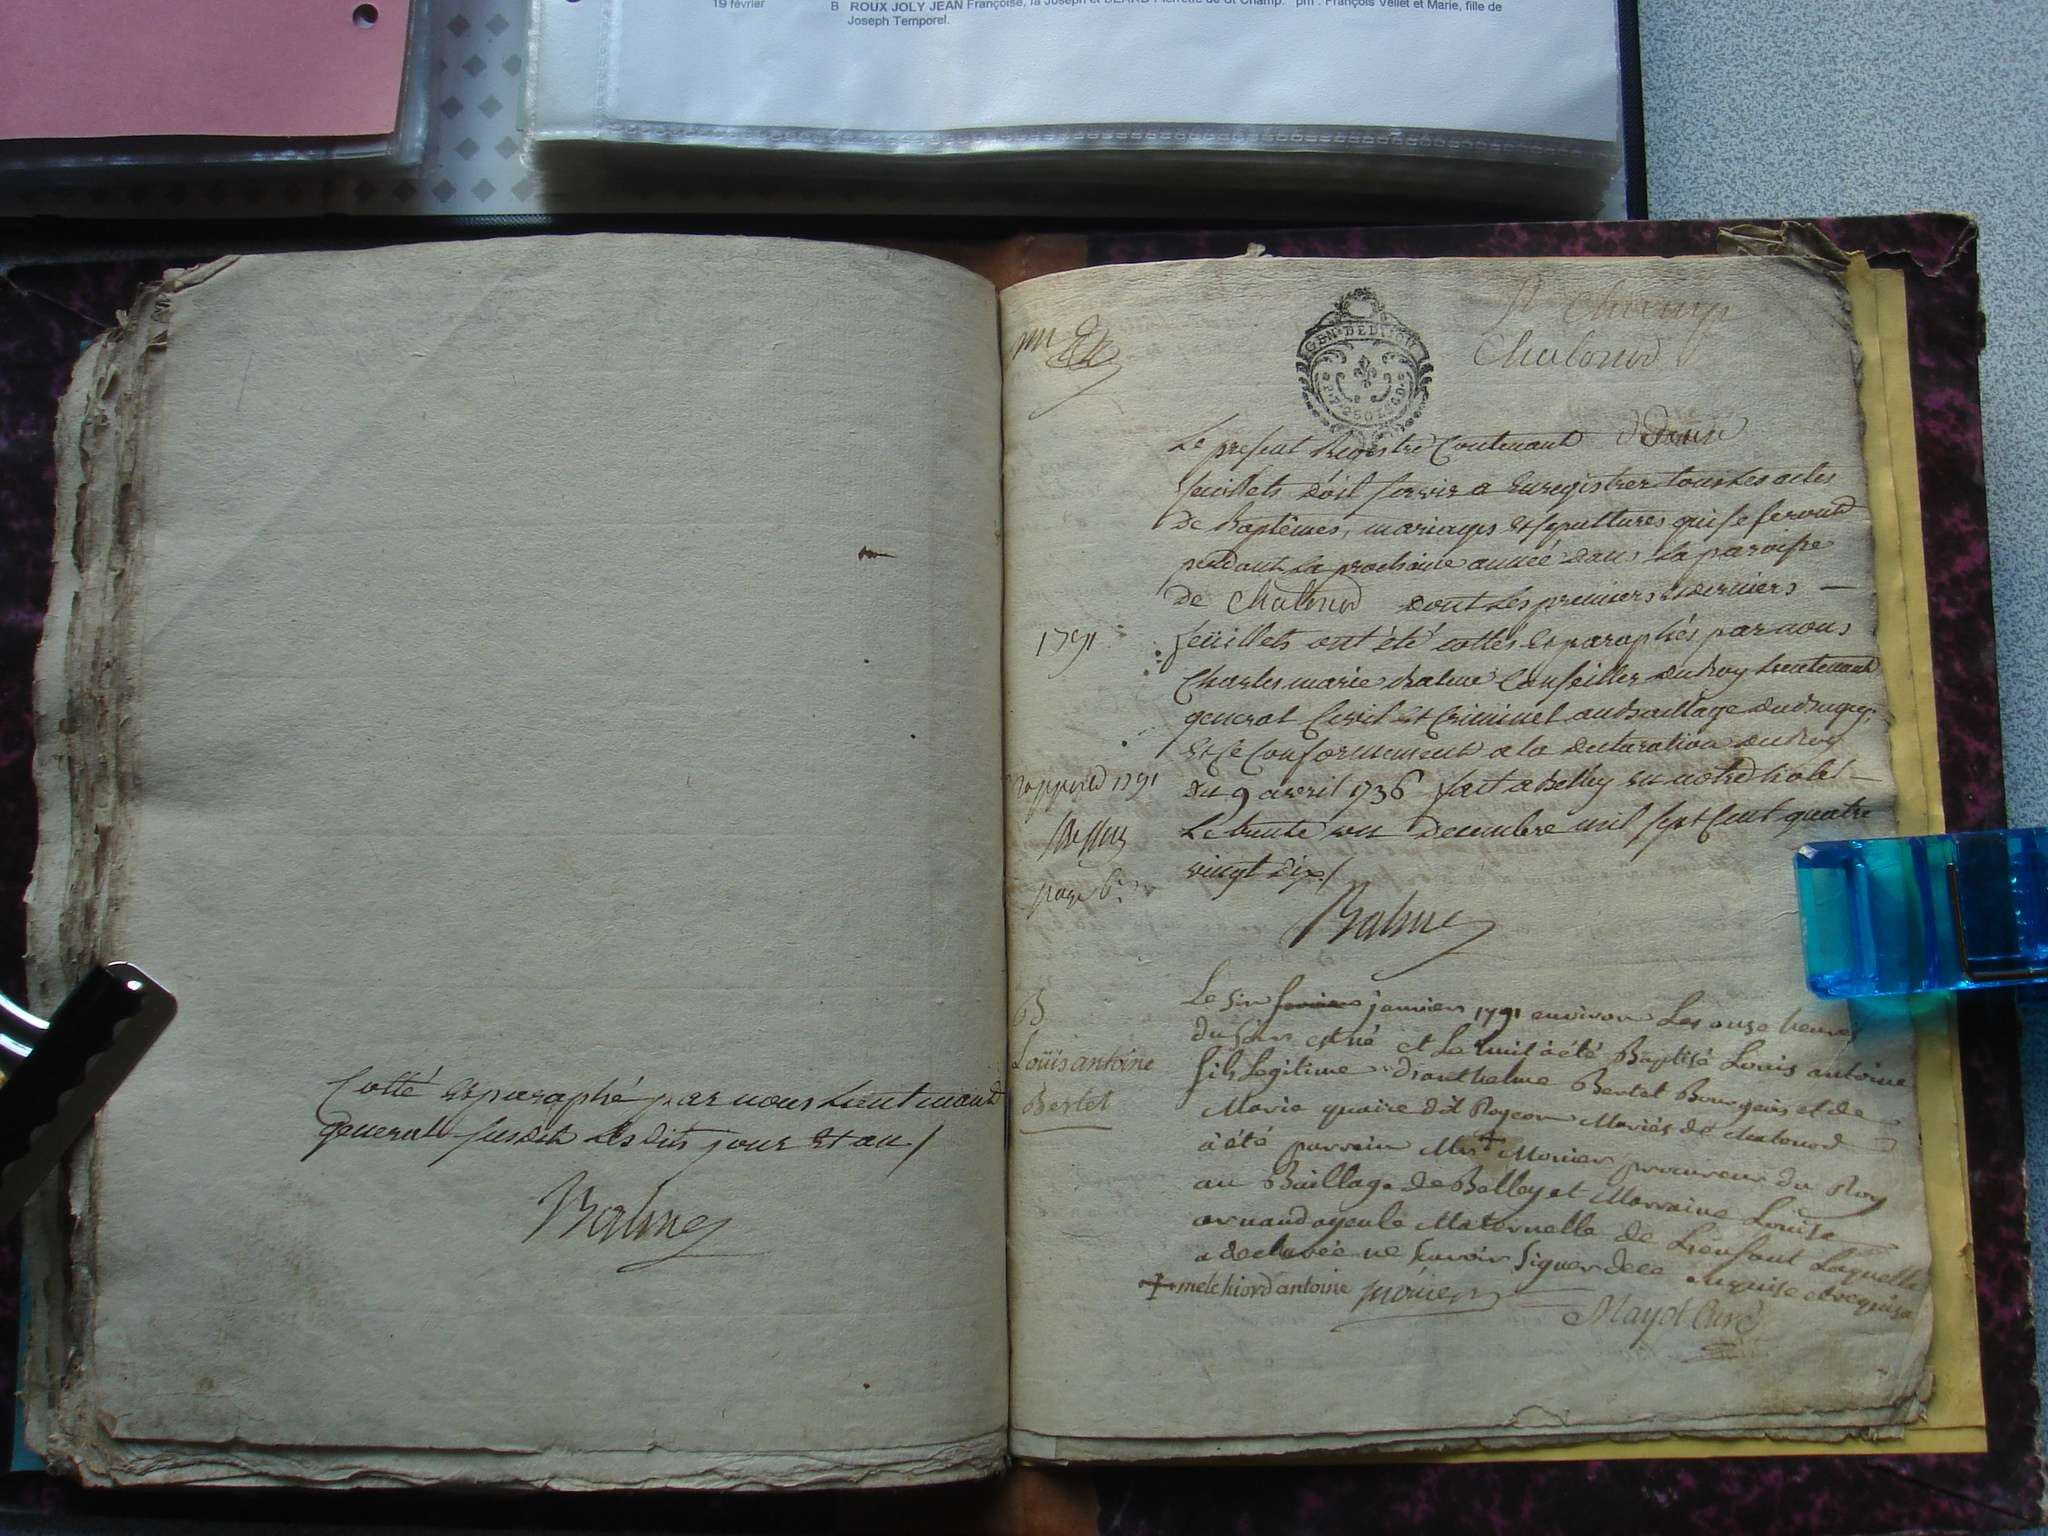 19 février B ROUX JOLY JEAN Françoise, fa Joseph et BLARD Pierrette de St Champ. pm : François Vellet et Marie, fille de
Joseph Temporel.
Cotté et paraphé par nous Lieutenant
general susdit lesdits jour et an /
Balme
St Champ
Chalonod
GEN. DE DIJON
Le present Registre Contenant
feuillets doit servir a Enregistrer tous les actes
de Baptêmes, mariages et sepultures qui se feront
pendant la prochaine année dans la paroisse
de Chalonod dont les premiers et derniers —
feüillets ont été cottés et paraphés par nous
Charles marie Balme Conseiller du Roy Lieutenant
general Civil et Criminel au Baillage du Bugey;
et ce Conformement a la declaration du Roy
du 9 avril 1736 fait a Belley en notre hotel —
Le trente un decembre mil sept cent quatre
vingt dix /
Balme
1791
1791
page 6
B
Loüis antoine
Bertet
Le six janvier 1791 environ Les onze heures
du soir est né et Le huit à été Baptisé Louis antoine
fils Legitime d'anthelme Bertet Bourgeois et de
Marie quaire dit Rogeon Mariés de chalonod
à été parrain Mr + Monier procureur du Roy
au Baillage de Belley et Marraine Louise
arnaud ayeule Maternelle de L'enfant Laquelle
a declarée ne savoir signer de ce enquise et requise
+ melchiord antoine monier
Mayot Curé